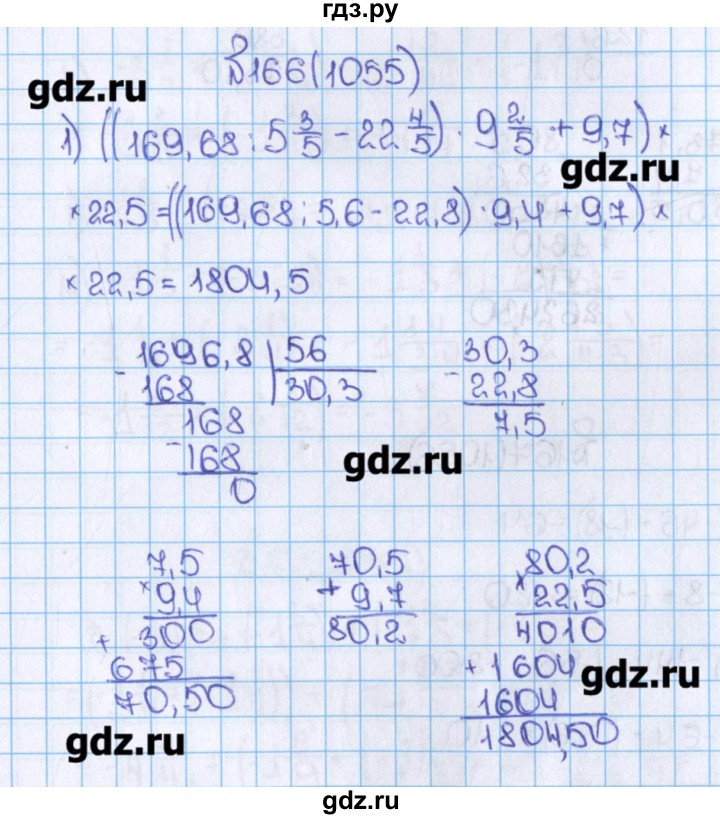 гдз.ру
№166(1055)
gdz.ru
1) ((169,68 : 5 3/5 - 22 4/5) · 9 2/5 + 9,7) ×
gdz.ru
× 22,5 = ((169,68 : 5,6 - 22,8) · 9,4 + 9,7) ×
× 22,5 = 1804,5
1696,8 | 56
- 168 | 30,3
168
- 168
0
30,3
- 22,8
7,5
gdz.ru
7,5
× 9,4
300
+ 675
70,50
70,5
+ 9,7
80,2
80,2
× 22,5
4010
+ 1604
1604
1804,50
gdz.ru
gdz.ru
gdz.ru